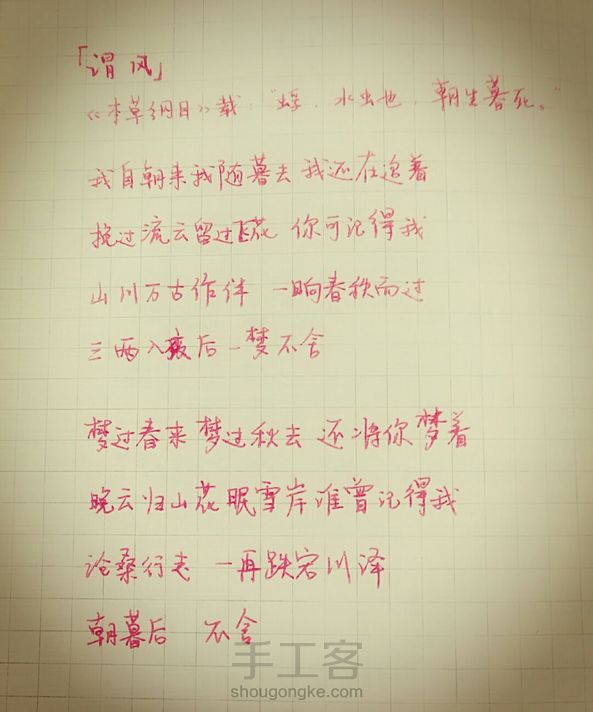 「谓风」
《本草纲目》载:"蜉,水虫也,朝生暮死。"
我自朝来我随暮去 我还在追着
挽过流云留过飞花 你可记得我
山川万古作伴 一晌春秩而过
三两入夜后一梦不舍
梦过春来梦过秋去 还将你梦着
晚云归山花眠雪岸谁曾记得我
沧桑行走 一再跌宕川泽
朝暮后 不舍
手工客
shougongke.com